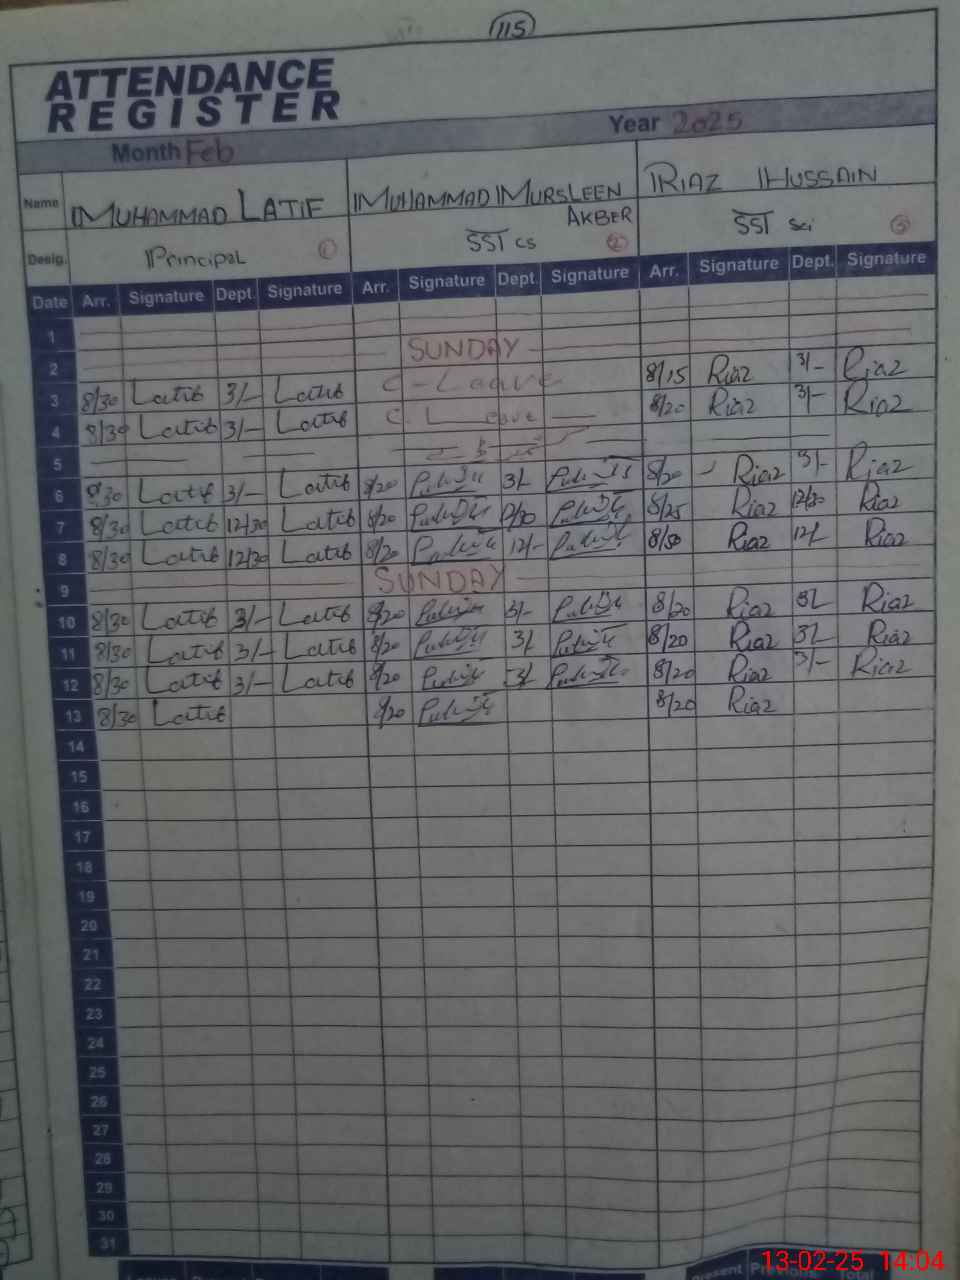 115
ATTENDANCE
REGISTER
Month Feb Year 2025
Name MUHAMMAD LATIF MUHAMMAD MURSLEEN AKBER RIAZ HUSSAIN
Desig. Principal 1 SST CS 2 SST Sci 3
Date Arr. Signature Dept. Signature Arr. Signature Dept. Signature Arr. Signature Dept. Signature
1
2 SUNDAY
3 8/30 Latif 3/- Latif C-Leave 8/15 Riaz 3/- Riaz
4 8/30 Latif 3/- Latif C. Leave 8/20 Riaz 3/- Riaz
5
6 8/30 Latif 3/- Latif 8/20 3/- 8/20 Riaz 3/- Riaz
7 8/30 Latif 12/30 Latif 8/20 8/25 Riaz 12/30 Riaz
8 8/30 Latif 12/30 Latif 8/20 12/- 8/30 Riaz 12/- Riaz
9 SUNDAY
10 8/30 Latif 3/- Latif 8/20 3/- 8/20 Riaz 3/- Riaz
11 8/30 Latif 3/- Latif 8/20 3/- 8/20 Riaz 3/- Riaz
12 8/30 Latif 3/- Latif 8/20 3/- 8/20 Riaz 3/- Riaz
13 8/30 Latif 8/20 8/20 Riaz
14
15
16
17
18
19
20
21
22
23
24
25
26
27
28
29
30
31
Present Total
13-02-25 14:04